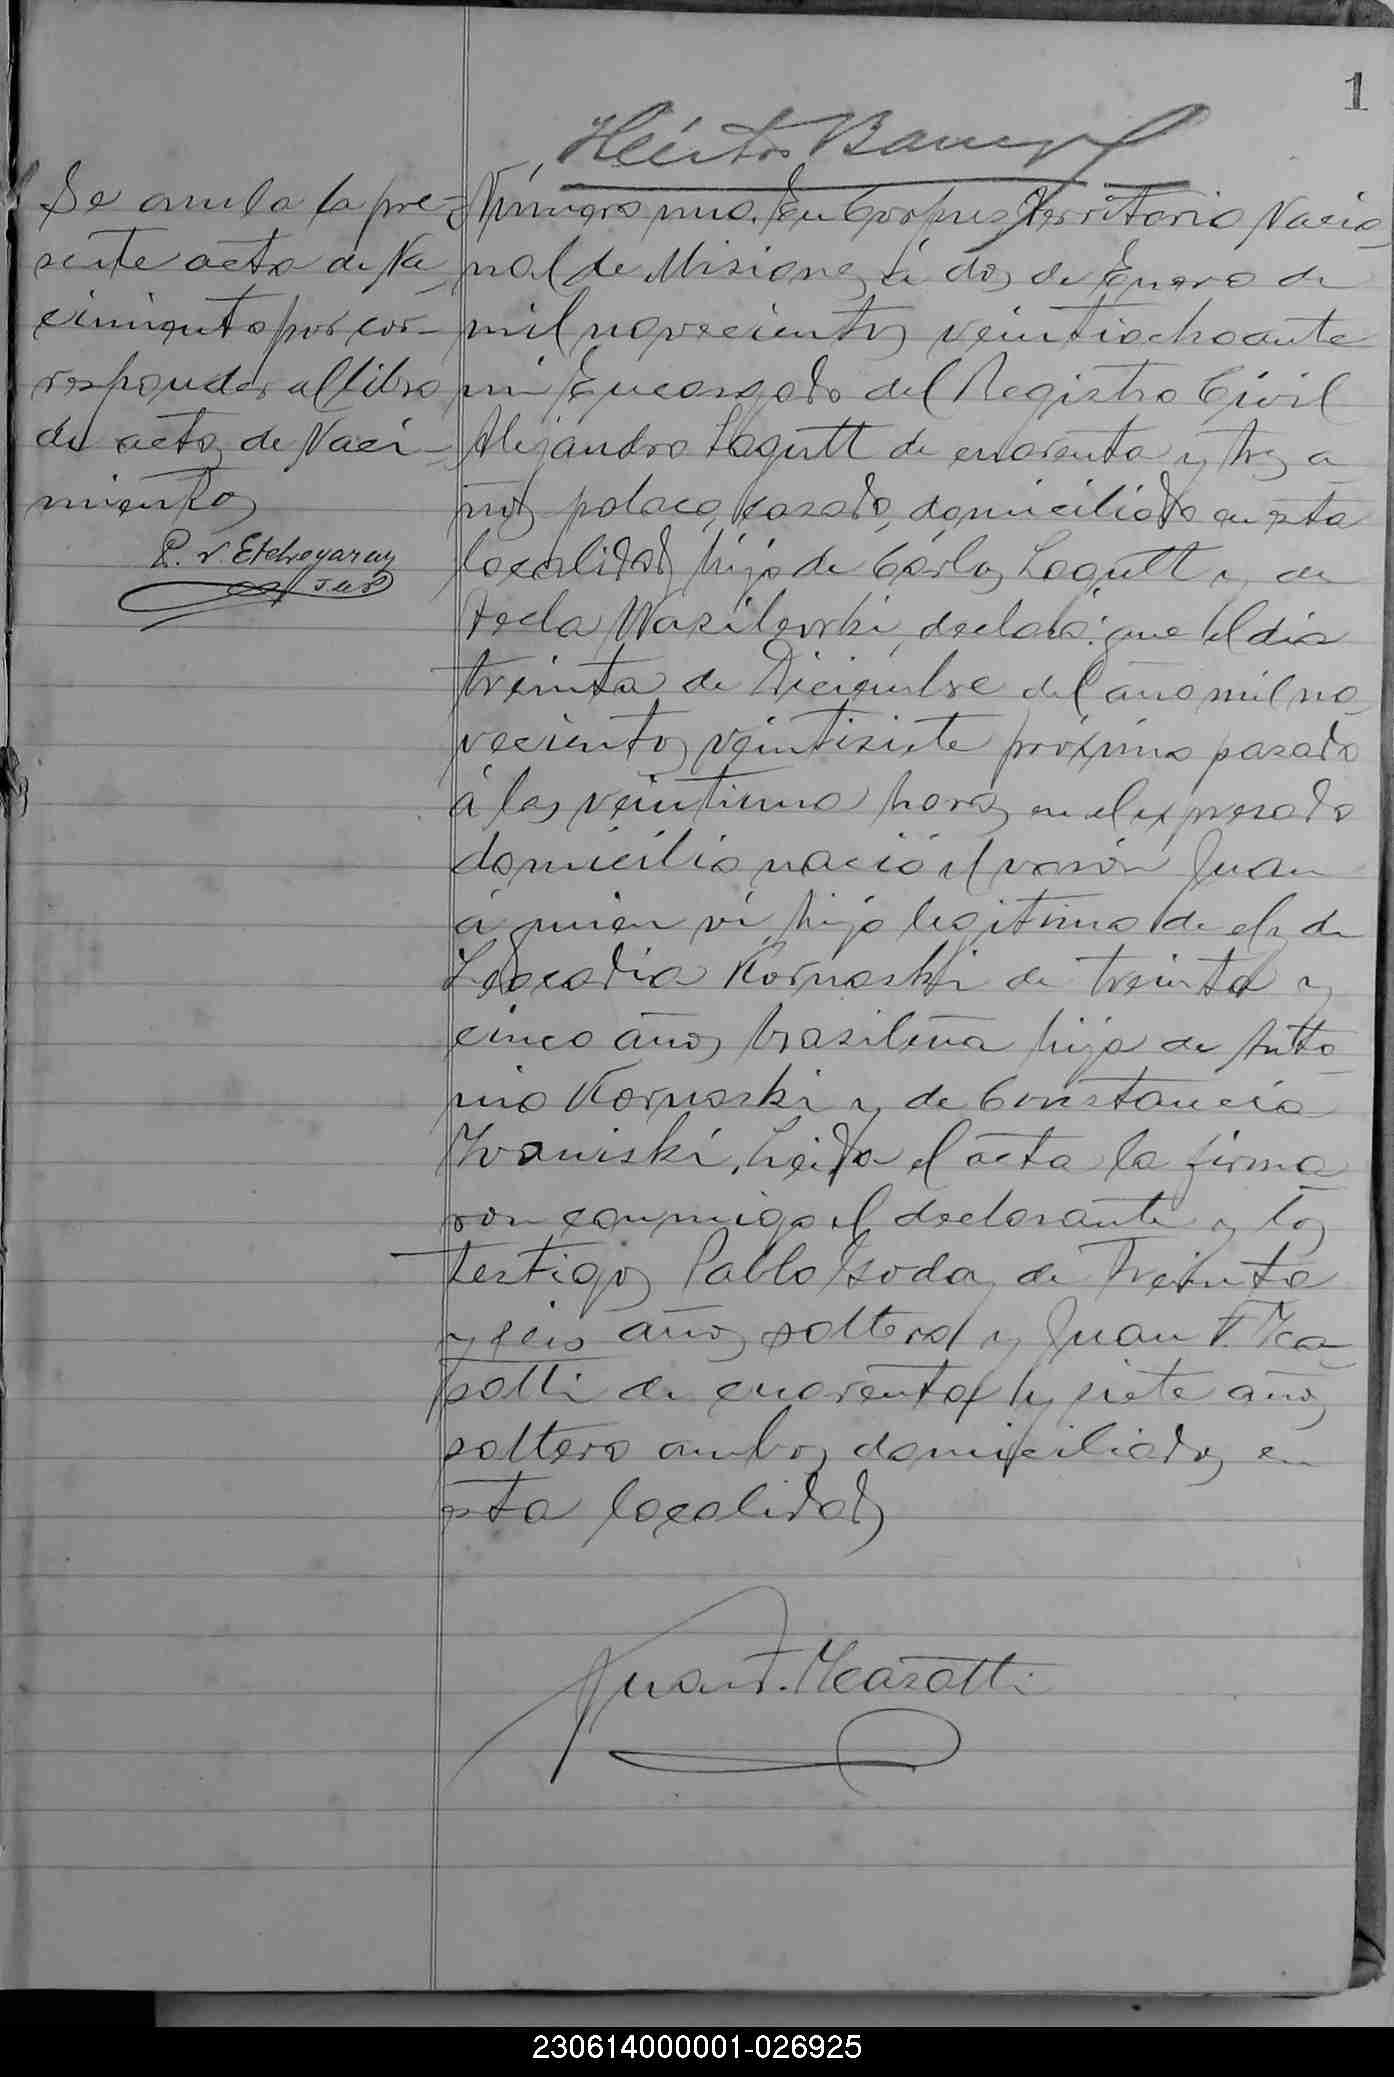 1
Héctor
Se anula la pre-
sente acta de Na
cimiento por cor-
responder al libro
de actas de Naci-
mientos
P. V. Etchegaray
J. de P.
Número uno. En Corpus Territorio Nacio
nal de Misiones, á dos de Enero de
mil novecientos veintiocho ante
mi Encargado del Registro Civil
Alejandro Logutt de cuarenta y tres a
ños polaco, casado, domiciliado en esta
localidad, hijo de Cárlos Logutt y de
Tecla Wasilevski, declaró: que el dia
treinta de Diciembre del año mil no
vecientos veintisiete próximo pasado
á las veintiuna horas en el expresado
domicilio nació el varón Juan
á quien ví, hijo legitimo de el y de
Leocadia Kornoski de treinta y
cinco años brasileña hija de Anto
nio Kornoski y de Constancia
Leida el acta la firma
ron conmigo el declarante y los
testigos Pablo de treinta
y seis años soltero y Juan F. Ma
satti de cuarenta y siete años
soltero ambos domiciliados en
esta localidad
Juan F. Masatti
230614000001-026925